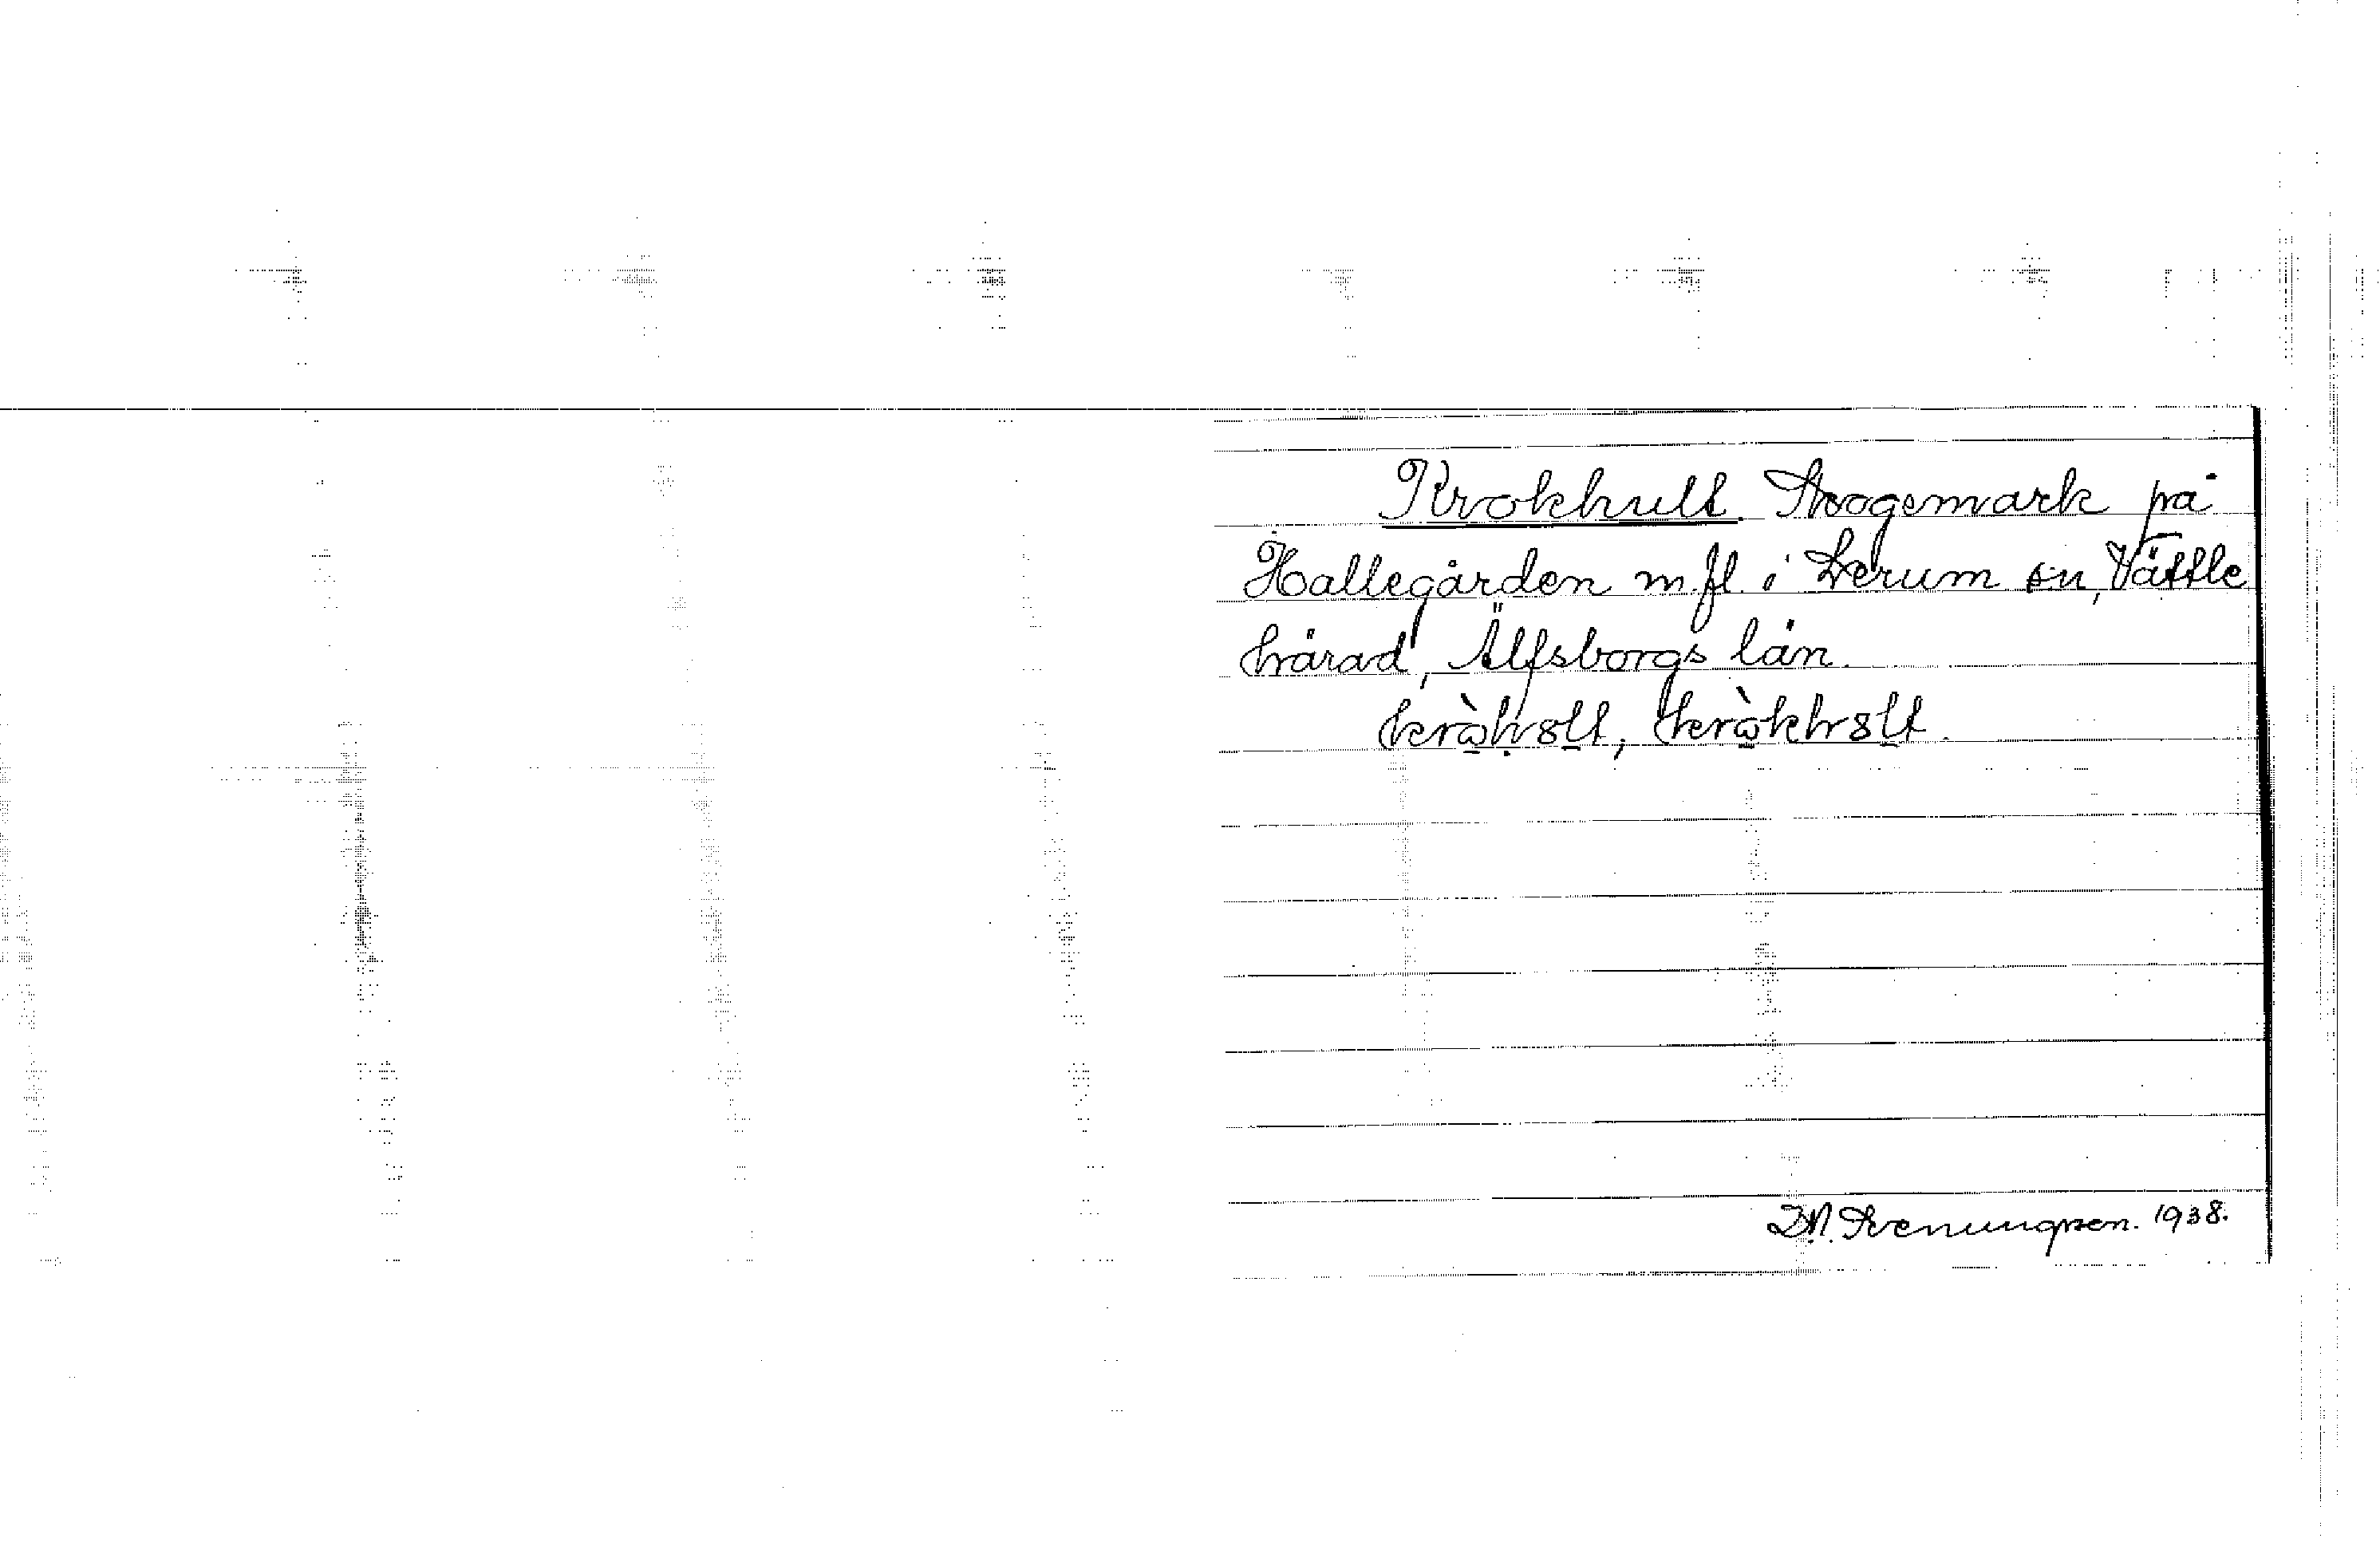 Krokhult. Skogsmark på
Hallegården m.fl. i Lerum sn, Vättle
härad, Älfsborgs län.
kràhu̥lt, kròkhult.
D.N. Svenungsson. 1938.